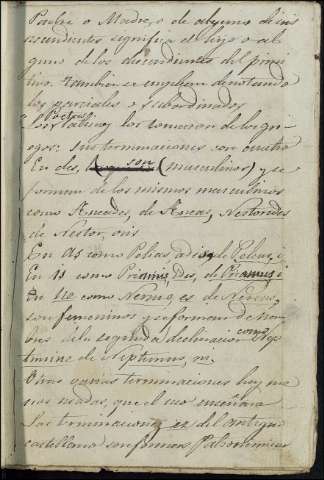 Padre o Madre, o de alguno de sus
ascendientes significa el hijo o al
guno de los descendientes del primi
tivo. Tambien se emplean denotando
los parciales o subordinados
Los Poetas latinos los tomaron de los grie
gos: sus terminaciones son cuatro
En des, son (masculinos) y se
forman de los mismos masculinos
como Æneades, de Æneas, Nestorides
de Nestor, oris
En as como Pelias, adis, de
En is como Priamis, Dos, de Priamus, i
En ne como Nerine, es de Nereus,
son femeninos y se forman de nom
bres de la segunda declinacion como Nep
tunine de Neptunus, ni.
Otras varias terminaciones hay me
nos usadas, que el uso enseñara
Las terminaciones ez del antiguo
castellano son formas Patronimicas